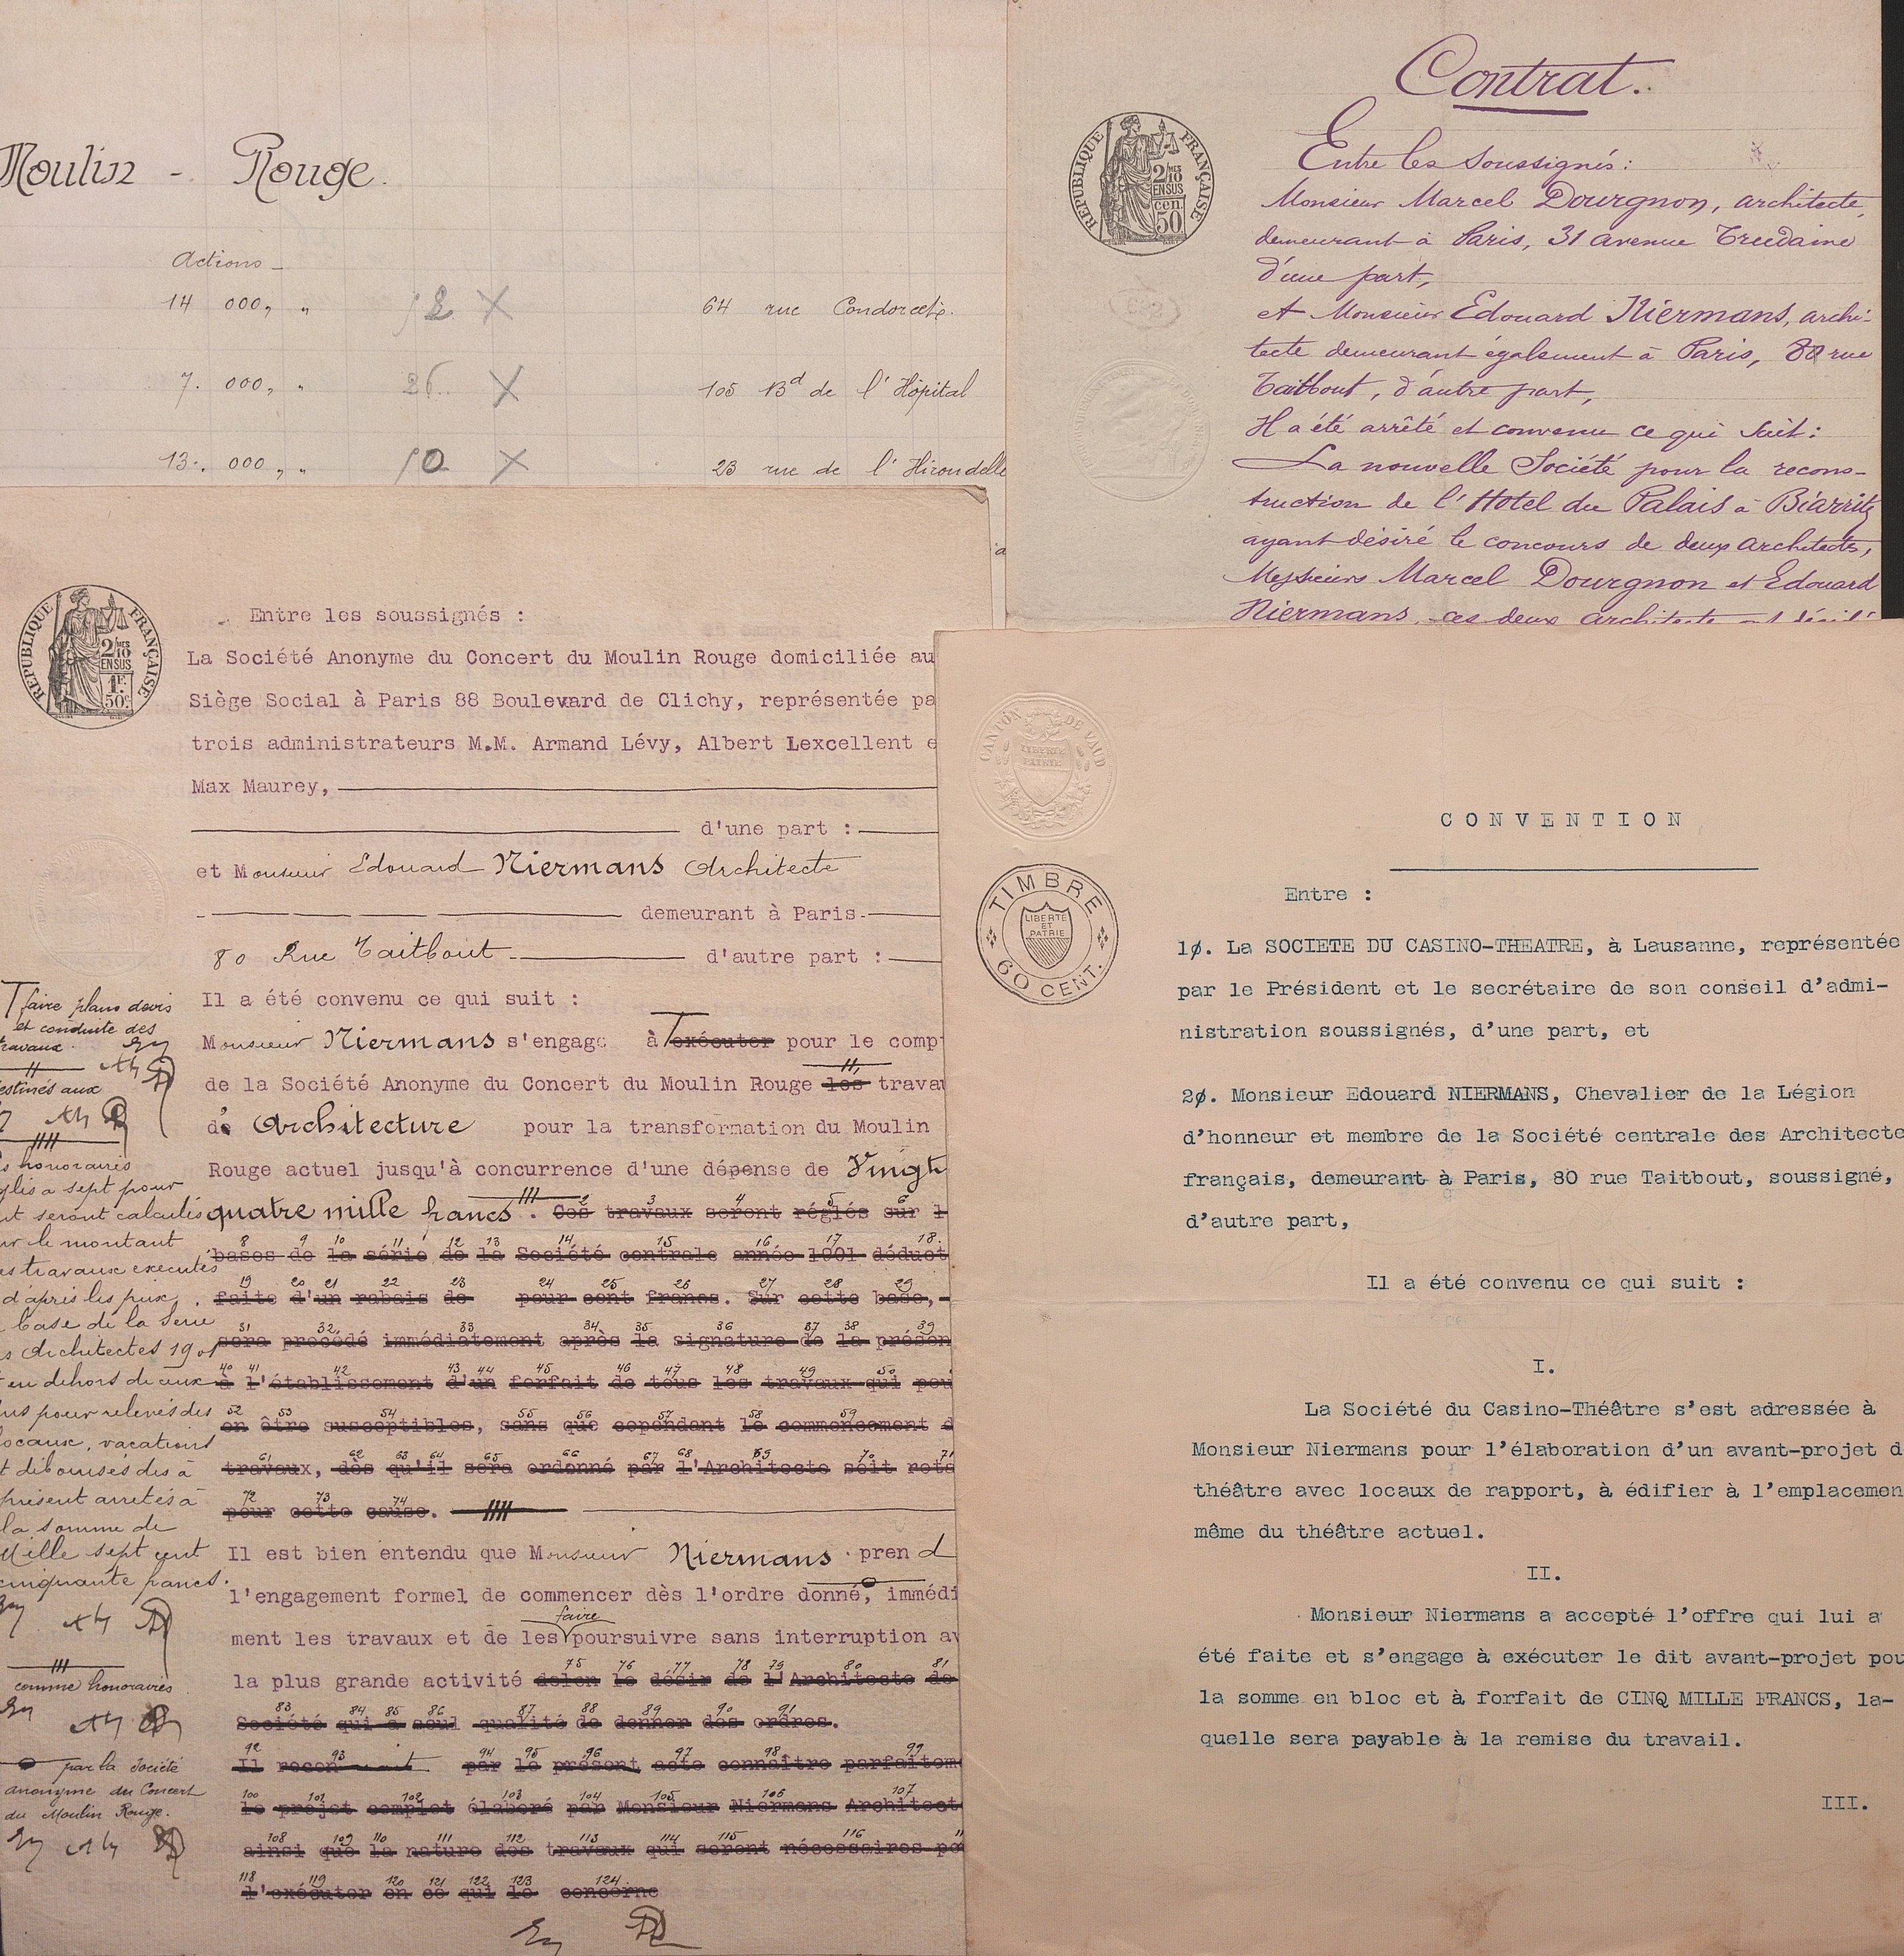 Moulin - Rouge.
Actions -
14 000, " 12 X 64 rue Condorcet.
7. 000, " 26 X 105 Bd de l'Hôpital
13. 000, " 10 X 23 rue de l'Hirondelle
Contrat.
REPUBLIQUE FRANÇAISE
2/10 MES
EN SUS
cen.
50
Entre les soussignés :
Monsieur Marcel Dourgnon, architecte,
demeurant à Paris, 31 avenue Trudaine
d'une part,
et Monsieur Edouard Niermans, archi-
tecte demeurant également à Paris, 80 rue
Taitbout, d'autre part,
Il a été arrêté et convenu ce qui suit :
La nouvelle Société pour la recons-
truction de l'Hotel du Palais à Biarritz
ayant désiré le concours de deux architectes,
Messieurs Marcel Dourgnon et Edouard
Niermans, ces deux architectes ont
REPUBLIQUE FRANÇAISE
2/10 MES
EN SUS
1F.
50c.
Entre les soussignés :
La Société Anonyme du Concert du Moulin Rouge domiciliée au
Siège Social à Paris 88 Boulevard de Clichy, représentée pa
trois administrateurs M.M. Armand Lévy, Albert Lexcellent e
Max Maurey,
d'une part :
et Monsieur Edouard Niermans Architecte
demeurant à Paris-
80 Rue Taitbout - d'autre part :
Il a été convenu ce qui suit :
Monsieur Niermans s'engage à exécuter pour le comp
de la Société Anonyme du Concert du Moulin Rouge les trava
d' Architecture pour la transformation du Moulin
Rouge actuel jusqu'à concurrence d'une dépense de Vingt
quatre mille francs. Ces travaux seront réglés sur l
bases de la série de la Société centrale année 1901 déduct
faite d'un rabais de pour cent francs. Sur cette base,
sera procédé immédiatement après la signature de la présen
à l'établissement d'un forfait de tous les travaux qui pou
en être susceptibles, sans que cependant le commencement d
travaux, dès qu'il sera ordonné par l'Architecte soit reta
pour cette cause.
Il est bien entendu que Monsieur Niermans prend
l'engagement formel de commencer dès l'ordre donné, immédi
faire
ment les travaux et de les poursuivre sans interruption av
la plus grande activité selon le désir de l'Architecte de
Société qui a seul qualité de donner des ordres.
Il reconnait par le présent acte connaître parfaitem
le projet complet élaboré par Monsieur Niermans Architect
ainsi que la nature des travaux qui seront nécessaires po
l'exécuter en ce qui le concerne
faire plans devis
et conduite des
travaux.
destinés aux
honoraires
réglés à sept pour
seront calculés
sur le montant
des travaux exécutés
d'après les prix
base de la Série
Architectes 1901
en dehors de ceux
dus pour relevés des
locaux, vacations
et déboursés dès à
présent arrêtés à
la somme de
Mille sept cent
cinquante francs.
comme honoraires
par la Société
anonyme du Concert
du Moulin Rouge.
CANTON DE VAUD
LIBERTE
ET
PATRIE
TIMBRE
LIBERTE
ET
PATRIE
60 CENT.
CONVENTION
Entre :
1°. La SOCIETE DU CASINO-THEATRE, à Lausanne, représentée
par le Président et le secrétaire de son conseil d'admi-
nistration soussignés, d'une part, et
2°. Monsieur Edouard NIERMANS, Chevalier de la Légion
d'honneur et membre de la Société centrale des Architecte
français, demeurant à Paris, 80 rue Taitbout, soussigné,
d'autre part,
Il a été convenu ce qui suit :
I.
La Société du Casino-Théâtre s'est adressée à
Monsieur Niermans pour l'élaboration d'un avant-projet d
théâtre avec locaux de rapport, à édifier à l'emplacemen
même du théâtre actuel.
II.
Monsieur Niermans a accepté l'offre qui lui a
été faite et s'engage à exécuter le dit avant-projet pou
la somme en bloc et à forfait de CINQ MILLE FRANCS, la-
quelle sera payable à la remise du travail.
III.